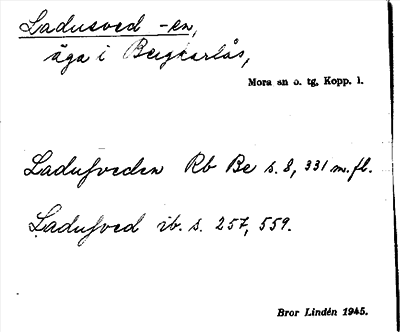 Ladusved -en,
äga i Bergkarlås,
Mora sn o. tg, Kopp. l.
Ladusveden Rb Be s. 8, 331 m.fl.
Ladusved ib. s. 257, 559.
Bror Lindén 1945.